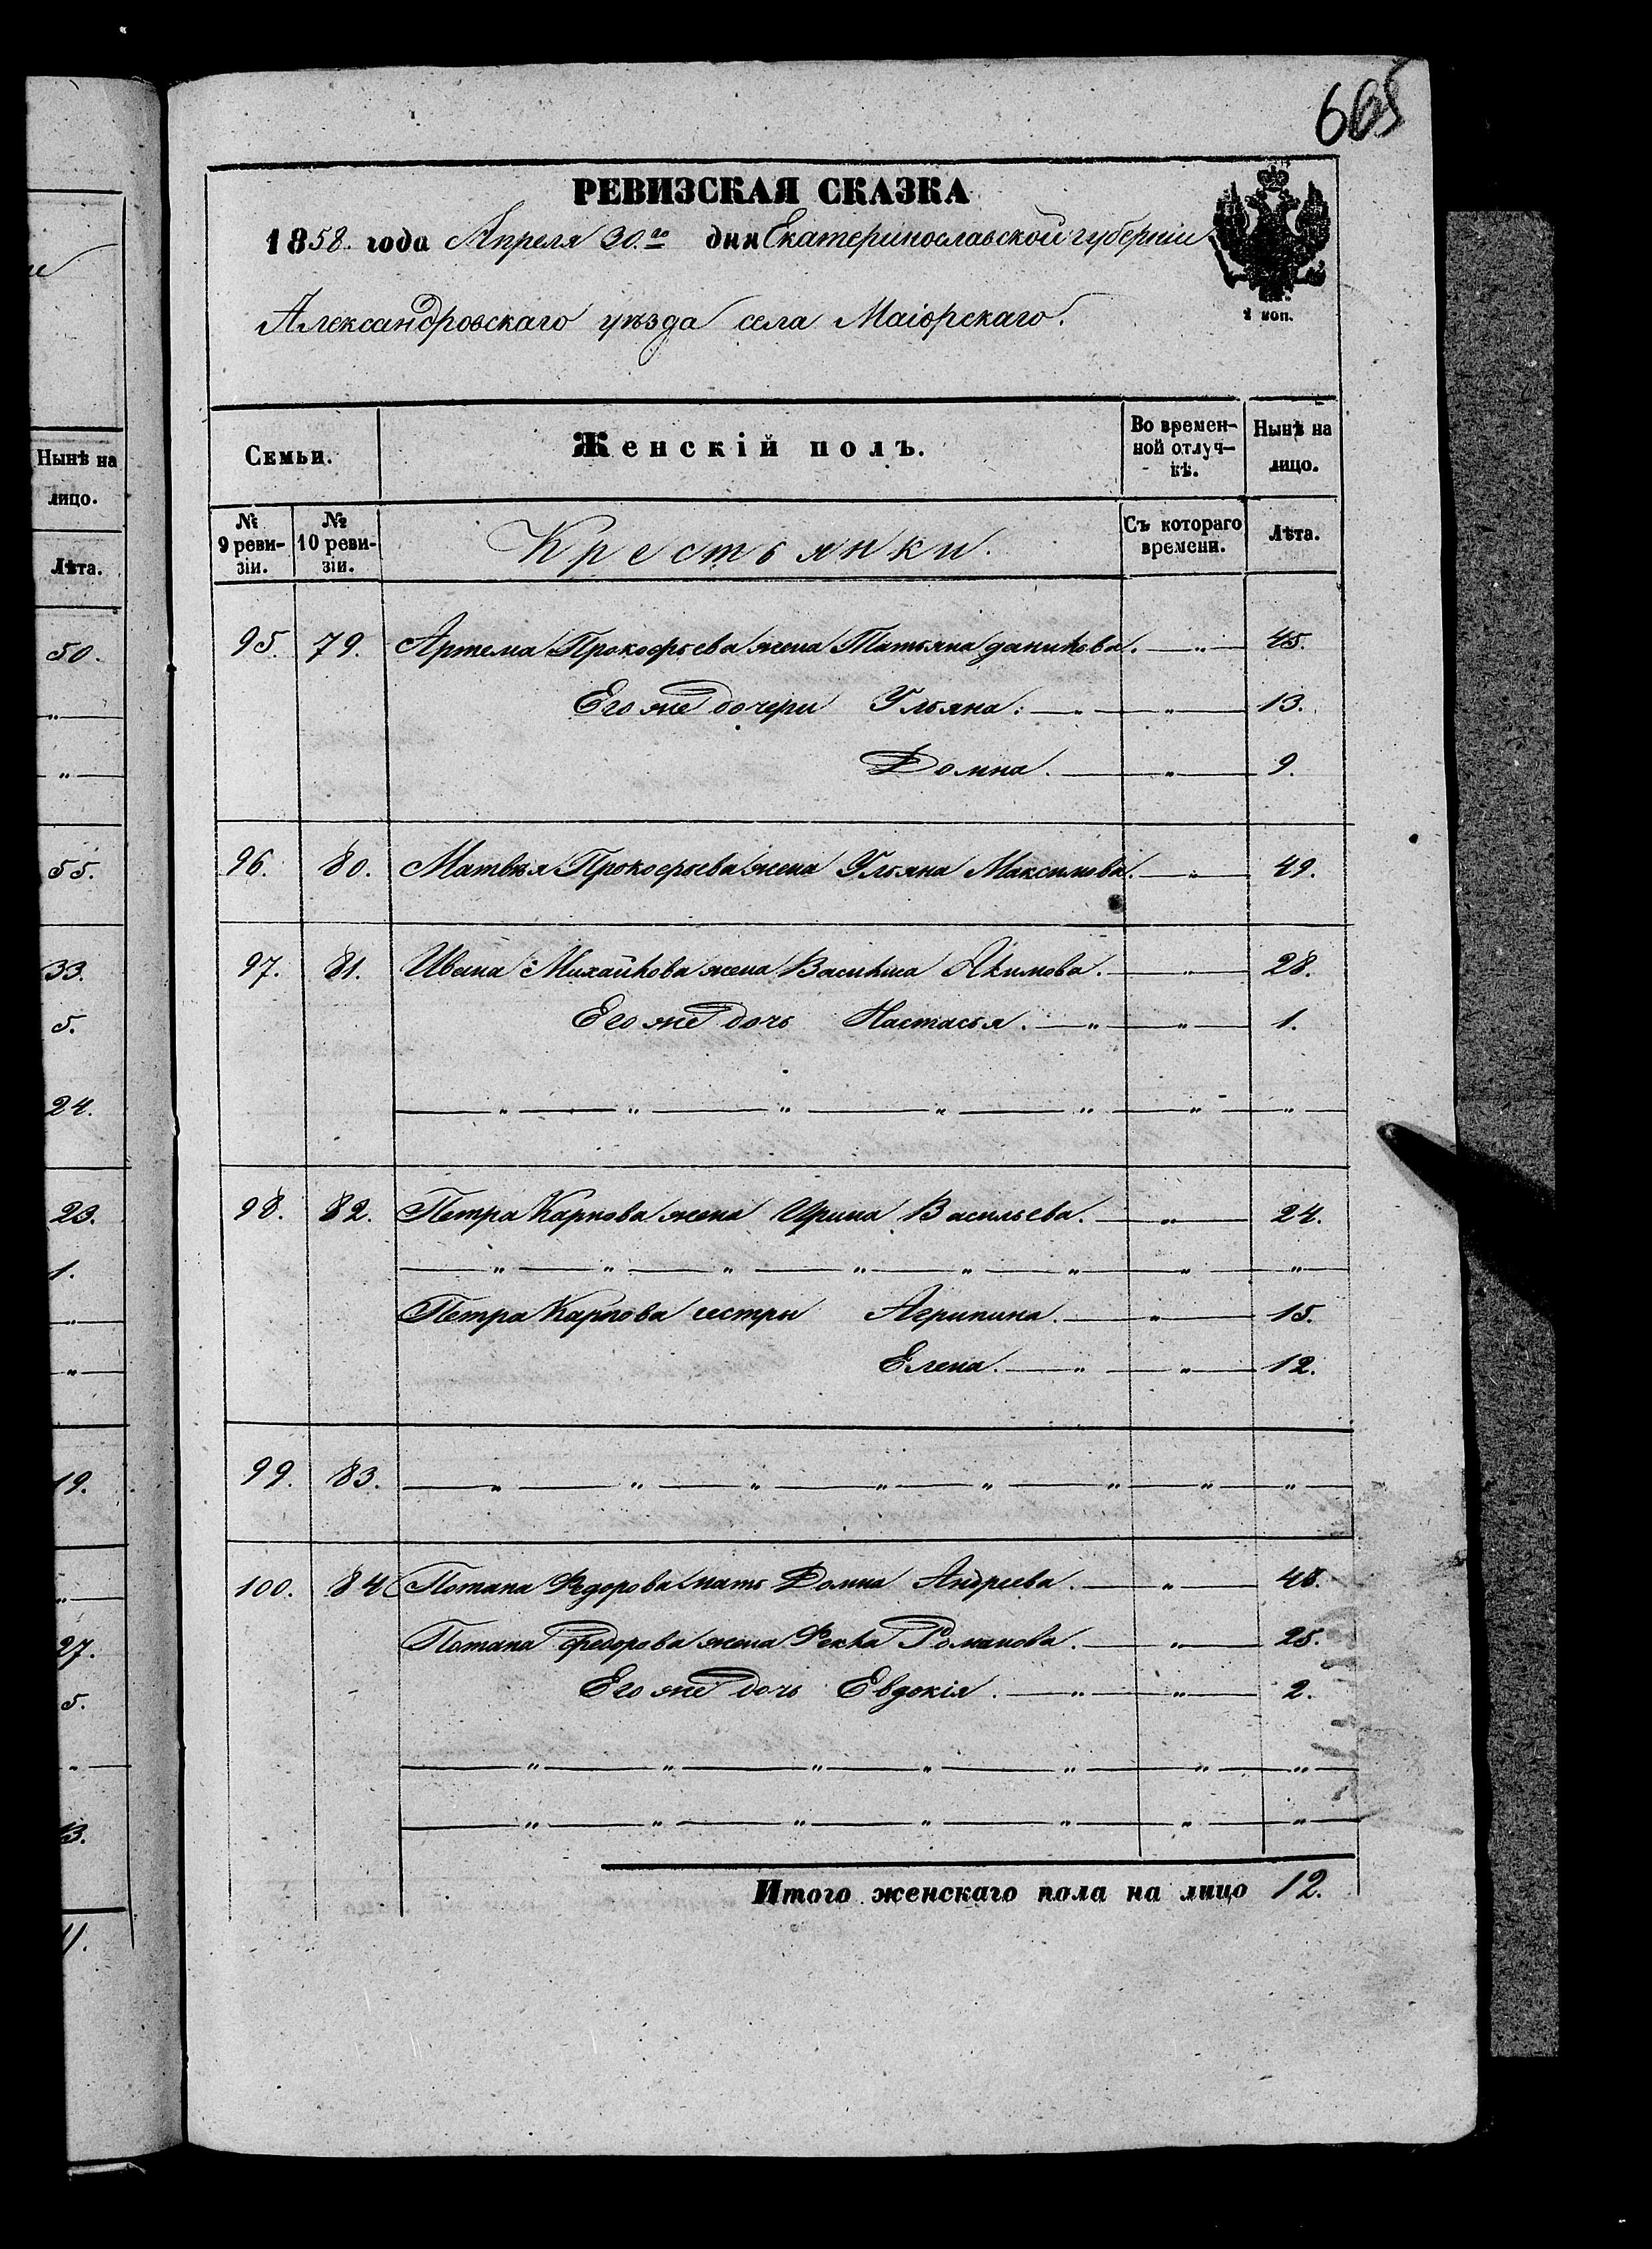 РЕВИЗСКАЯ СКАЗКА
1858. года Апреля 30.го дня Екатеринославской губерніи
1 коп.
Александровскаго уѣзда села Маіорскаго.
Семьи. Женскій полъ. Во времен- Нынѣ на
ной отлуч- лицо.
кѣ.
№ 9 реви- зіи. № 10 реви- зіи. Крестьянки. Съ котораго времени. Лѣта.
95. 79. Артема Прокофьева жена Татьяна данилова. — „ — 45.
Его же дочери Ульяна: — „ — „ — 13.
Домна. — „ — 9.
96. 80. Матвѣя Прокофьева жена Ульяна Максимова. — „ — 49.
97. 81. Ивана Михайлова жена Василиса Акимова. — „ — 28.
Его же дочь Настасья. — „ — „ — 1.
— „ — „ — „ — „ — „ — „ — „ —
98. 82. Петра Карпова жена Ирина Васильева. — „ — 24.
— „ — „ — „ — „ — „ — „ — „ — „ —
Петра Карпова сестры Агрипина. — „ — 15.
Елена. — „ — „ — 12.
99. 83. — „ — „ — „ — „ — „ — „ — „ — „ —
100. 84 Потапа Федорова мать Домна Андреева. — „ — 48.
Потапа Федорова жена Фекла Романова. — „ — 25.
Его же дочь Евдокія. — „ — „ — 2.
— „ — „ — „ — „ — „ — „ — „ —
— „ — „ — „ — „ — „ — „ — „ —
Итого женскаго пола на лицо 12.
Нынѣ на
лицо.
Лѣта.
50.
„
„
55.
33.
5.
24.
23.
1.
„
„
19.
„
27.
5.
„
13.